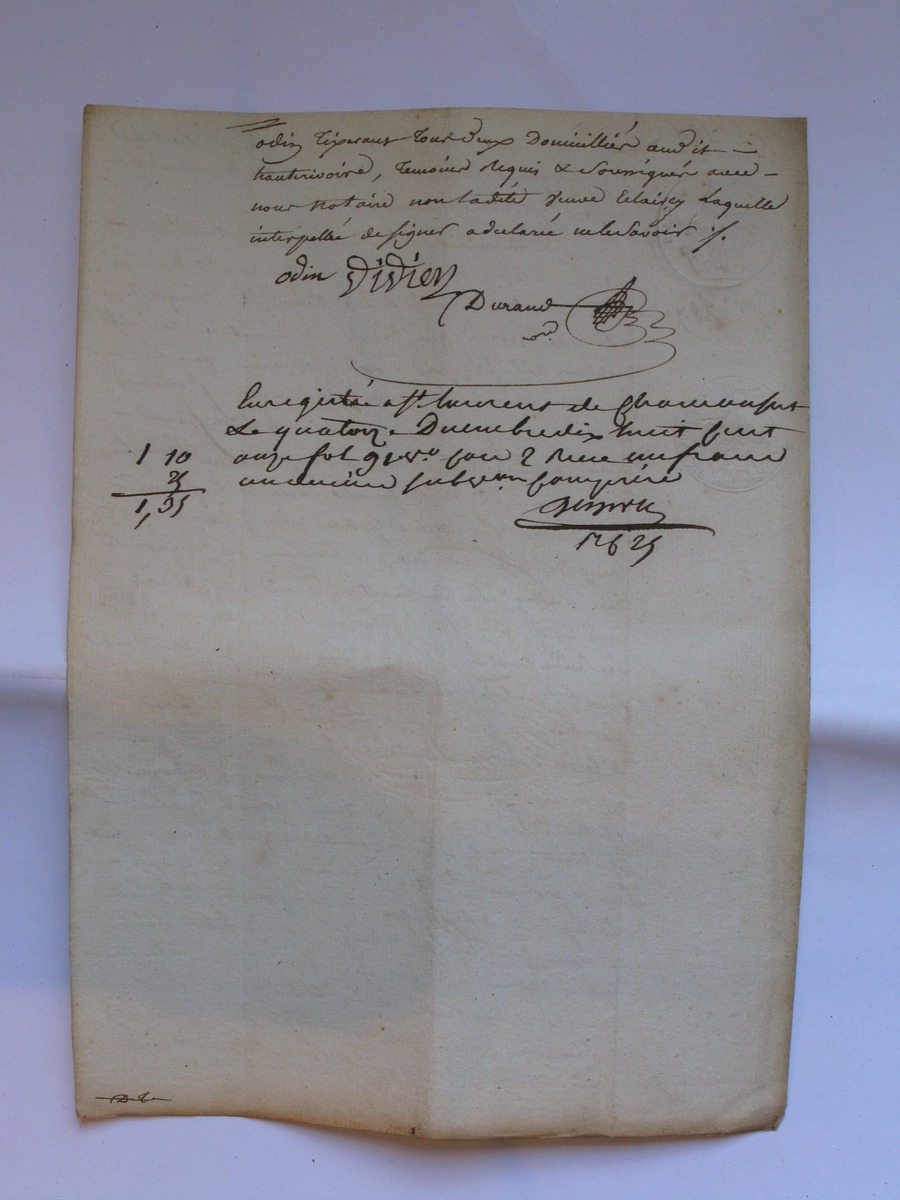 odin Tixerant tous deux Domicilliés audit
hauterivoire, Temoins Requis & Soussignés avec
nous Notaire non ladite veuve Laquelle
interpellée de signer a declaré ne le Savoir ./.
odin
Durand
nre
Enregistré a St. Laurent de Chamousset
Le quatorze Decembre dix huit cent
onze fol 91 vo Case 2 Recu un franc
1 10
25
1,35
subvon comprise